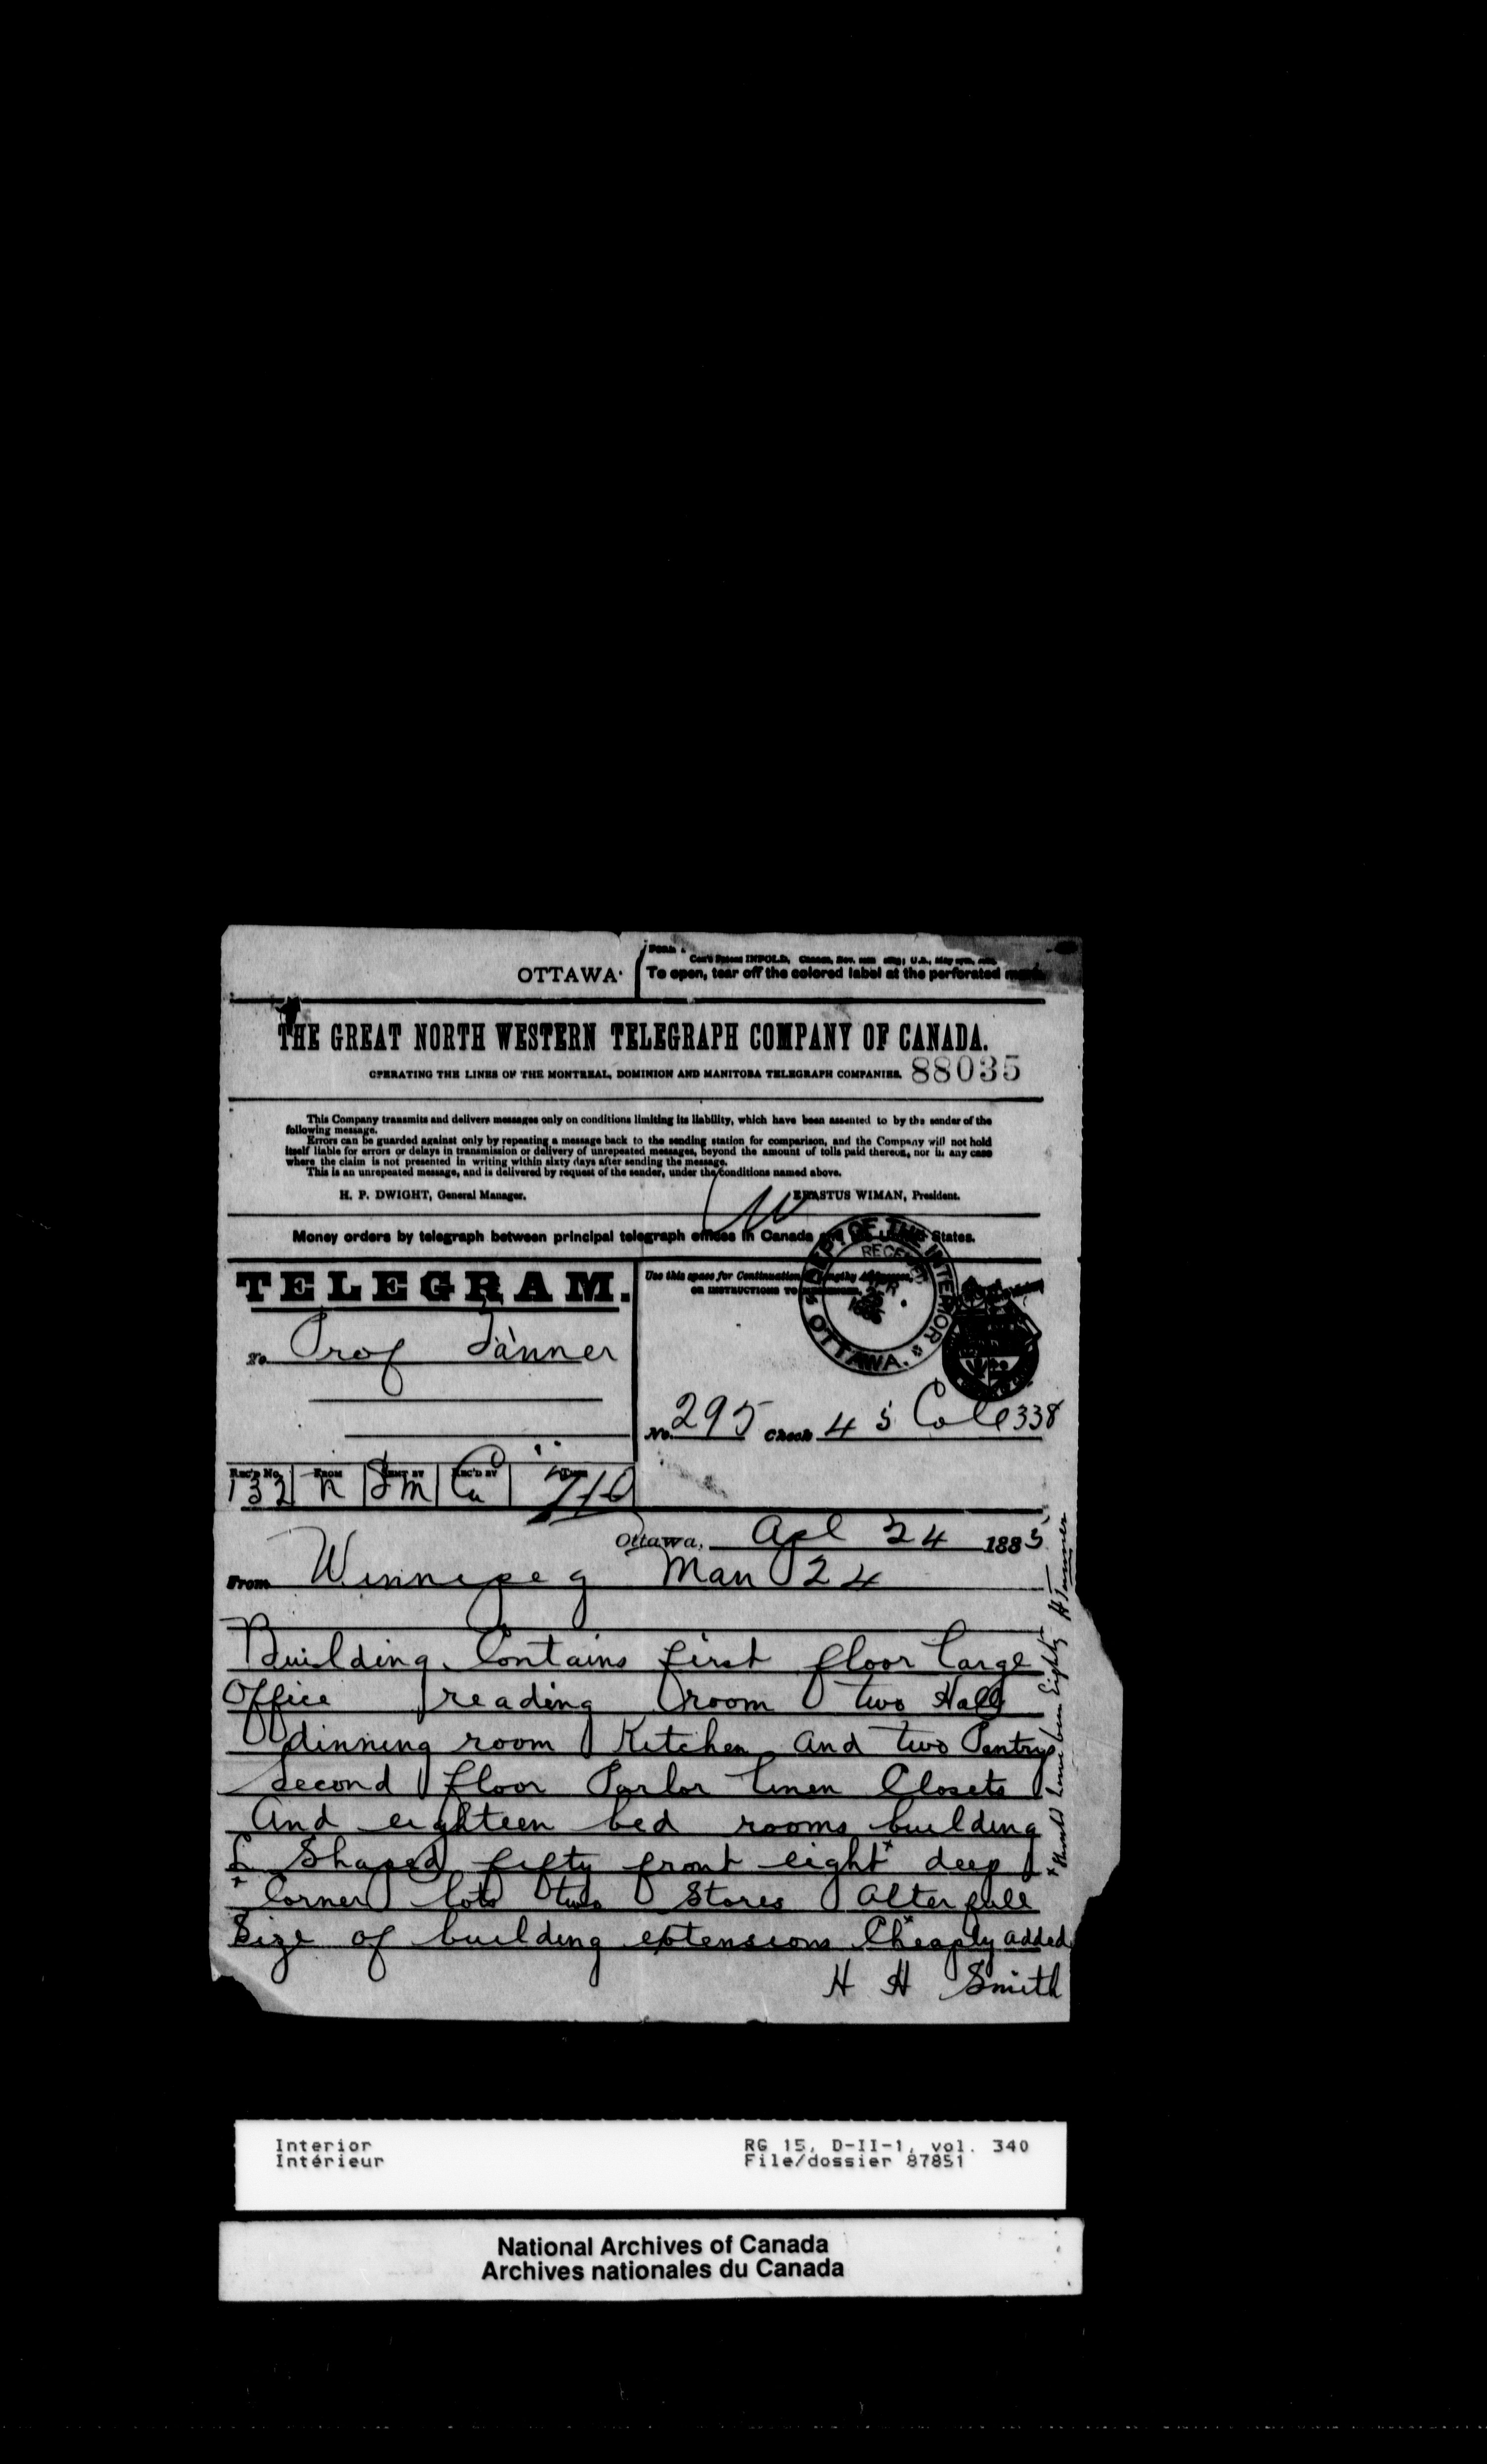 OTTAWA
To open, tear off the colored label at the perforated
THE GREAT NORTH WESTERN TELEGRAPH COMPANY OF CANADA.
OPERATING THE LINES OF THE MONTREAL, DOMINION AND MANITOBA TELEGRAPH COMPANIES.
88035
This Company transmits and delivers messages only on conditions limiting its liability, which have been assented to by the sender of the
following message.
Errors can be guarded against only by repeating a message back to the sending station for comparison, and the Company will not hold
itself liable for errors or delays in transmission or delivery of unrepeated messages, beyond the amount of tolls paid thereon, nor in any case
where the claim is not presented in writing within sixty days after sending the message.
This is an unrepeated message, and is delivered by request of the sender, under the conditions named above.
H. P. DWIGHT, General Manager. ERASTUS WIMAN, President.
Money orders by telegraph between principal telegraph offices in Canada and the United States.
TELEGRAM.
Use this space for Continuation Lengthy Addresses,
OR INSTRUCTIONS TO
DEPT OF THE INTERIOR
OTTAWA.
To Prof Tanner
No. 295 Check 45 Col 338
REC'D No. FROM SENT BY REC'D BY TIME
132 n Sm Ca 710
Ottawa, Apl 24 1885
From Winnipeg Man 24
Building Contains first floor large
Office reading room two Halls
dinning room Kitchen and two Pantrys
Second floor Parlor linen Closets
And eighteen bed rooms building
L Shaped fifty front eight* deep
Corner lots two Stores alter full
Size of building extensions Cheaply added
H H Smith
* Should have been Eighty H Tanner
Interior RG 15, D-II-1, vol. 340
Intérieur File/dossier 87851
National Archives of Canada
Archives nationales du Canada